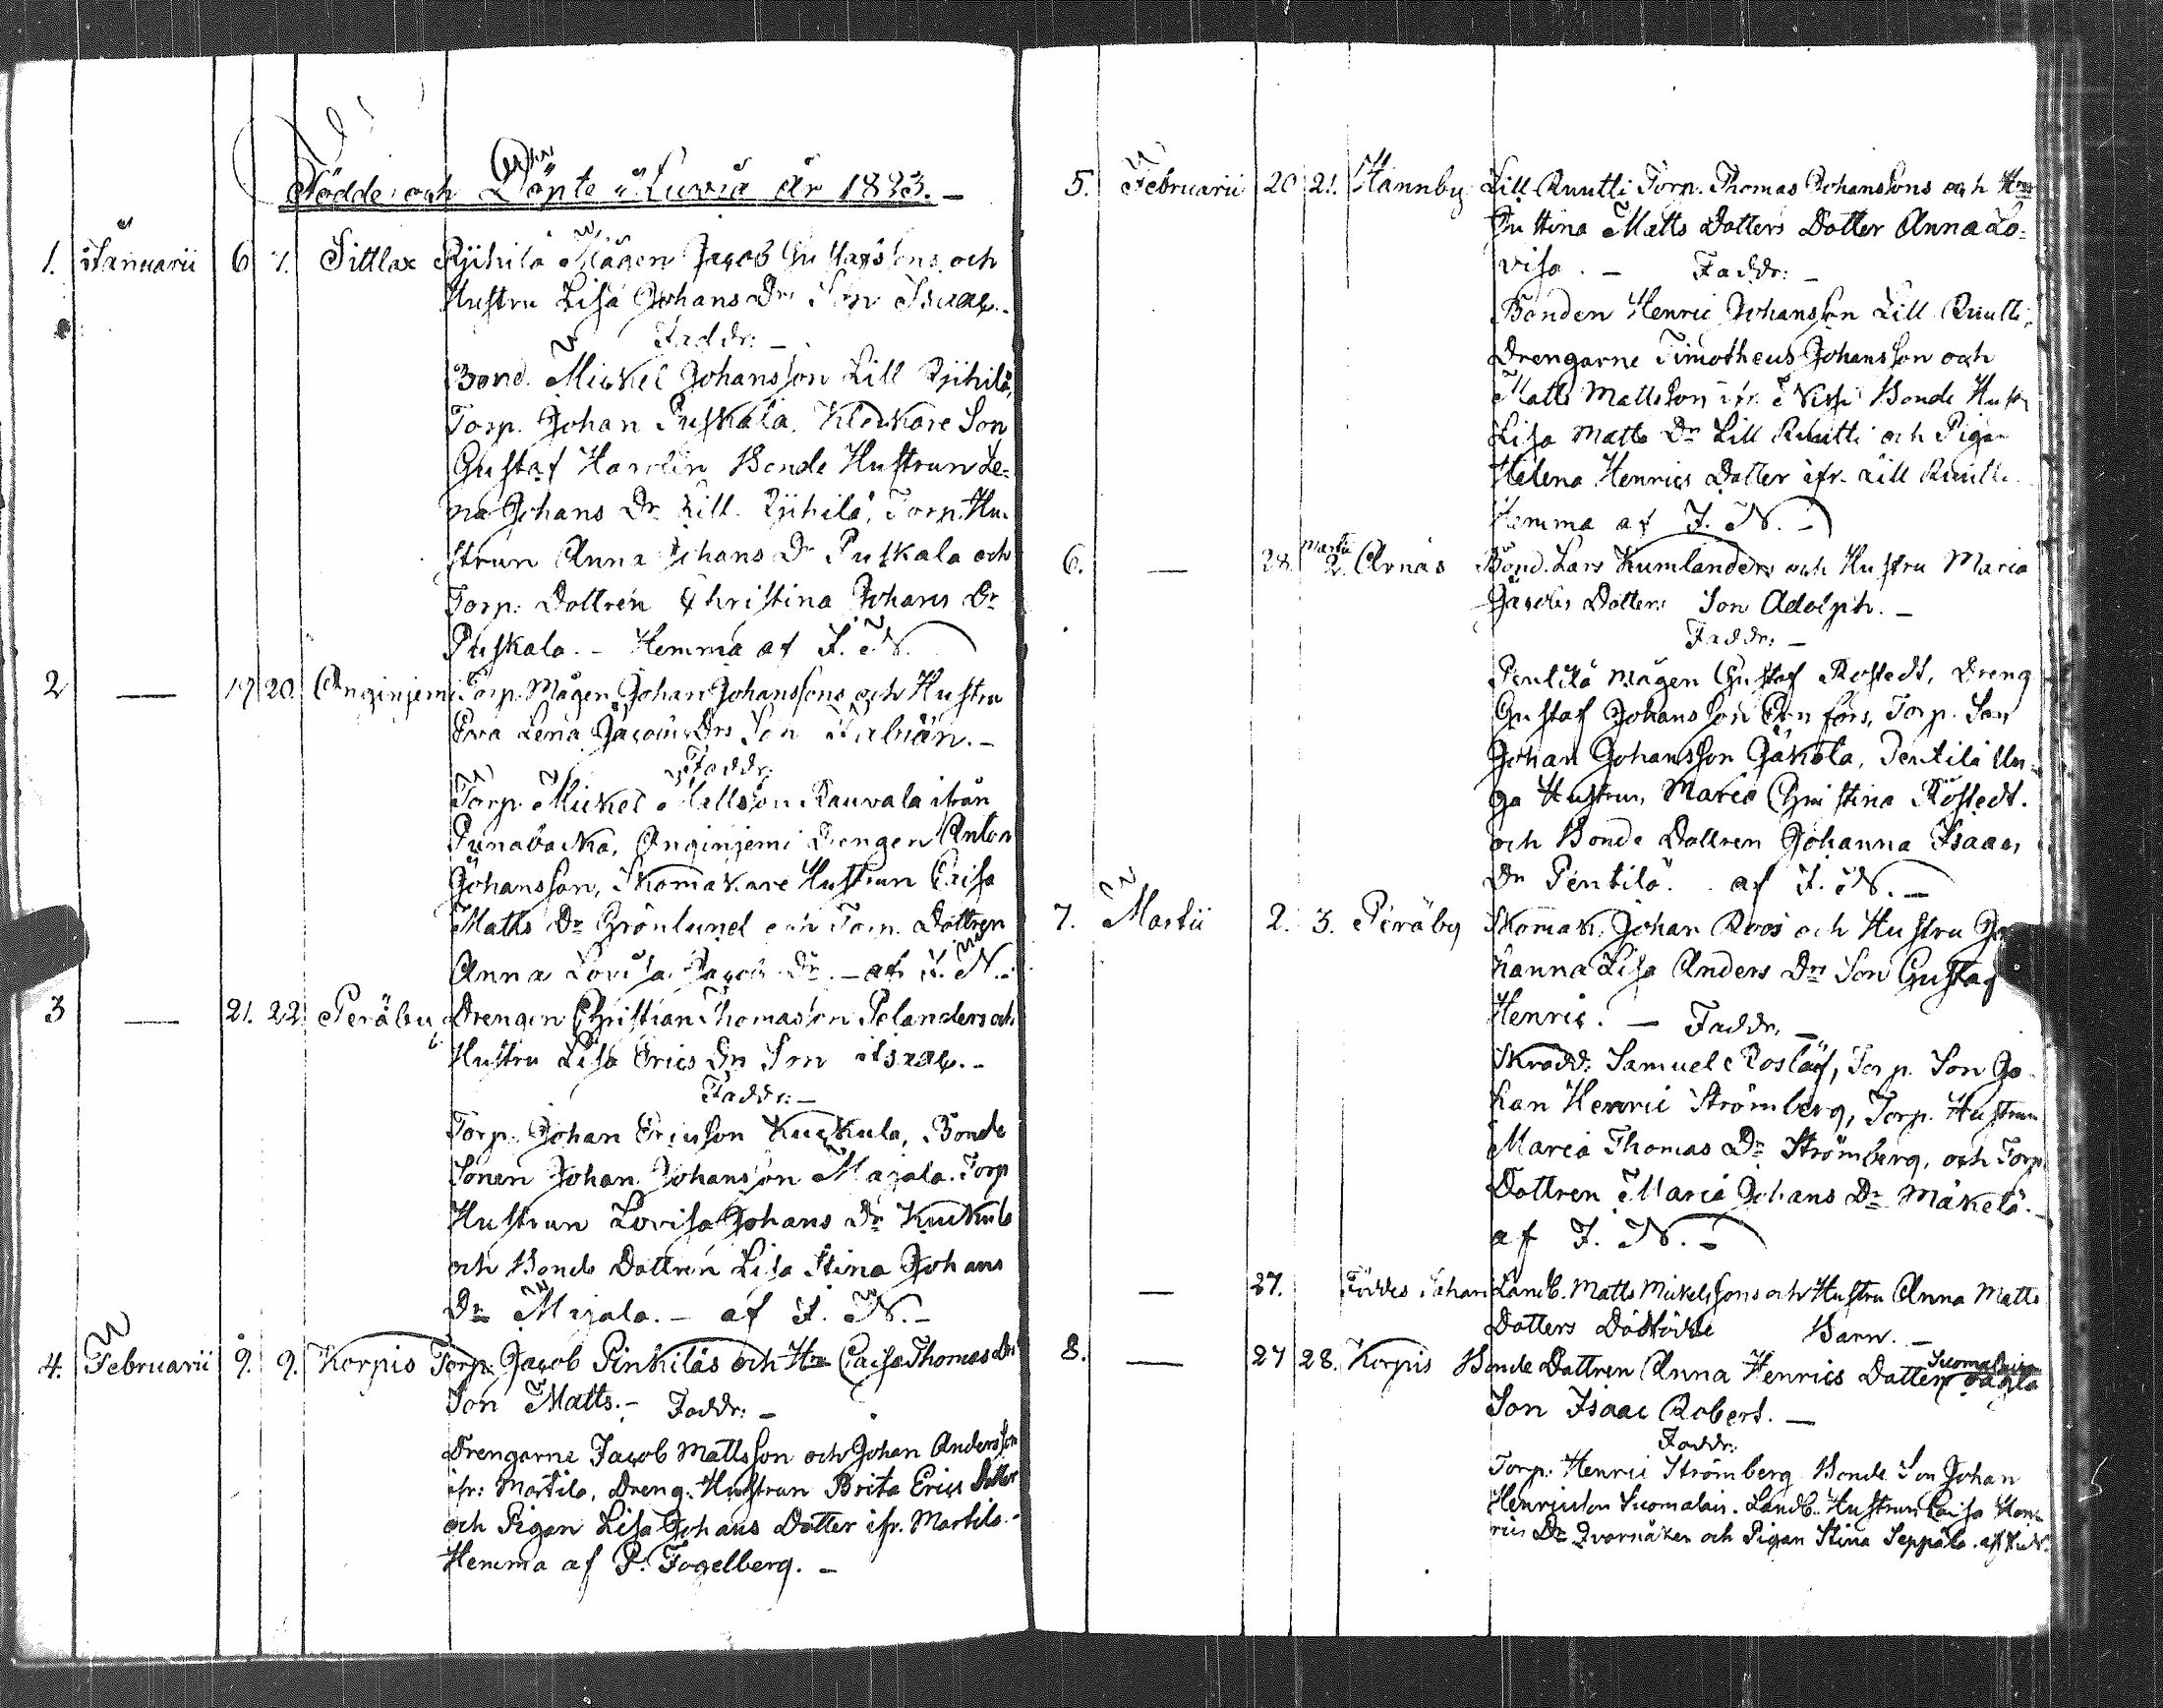 Födde och Döpte i Luvia År 1833. –
1. Januarii 6 7. Sittlax Rjihilä Mågen Jacob Gustafssons och
Hustru Lisa Johans Drs Son Isaac. –
Faddr: –
Bond. Mickel Johansson Lill Rjihilä,
Torp. Johan Puskala, Klockare Son
Gustaf Hardin Bonde Hustrun Le-
na Johans Dr Lill Rjihilä, Torp. Hu-
strun Anna Johans Dr Puskala och
Torp. Dottren Christina Johans Dr
Puskala. – Hemma af I. N.
2 — 19 20. Anginjemi Torp. Mågen Johan Johanssons och Hustru
Eva Lena Jacobs Drs Son Fabian. –
Faddr:
Torp. Mickel Mattsson Rauvala ifrån
Punabacka, Anginjemi Drengen Anton
Johansson, Skomakare Hustrun Caisa
Matts Dr Grönlund och Torp. Dottren
Anna Lovisa Jacobs Dr. – af I. N. –
3 — 21. 22 Peräby Drengen Christian Thomasson Polanders och
Hustru Lisa Erics Drs Son Isaac. –
Faddr: –
Torp. Johan Ericsson Kuckula, Bonde
Sonen Johan Johansson Majala. Torp
Hustrun Lovisa Johans Dr Kuckula
och Bonde Dottren Lisa Stina Johans
Dr Majala. – af I. N. –
4. Februarii 9. 9. Korpis Torp. Jacob Pinkiläs och Hu Caisa Thomas Drs
Son Matts. – Faddr: –
Drengarne Jacob Mattsson och Johan Andersson
ifr: Martila, Dreng. Hustrun Brita Erics Dotter
och Pigan Lisa Johans Dotter ifr. Martila. –
Hemma af P. Fogelberg. –
5. Februarii 20 21. Hannby Lill Ruutti Torp. Thomas Johanssons och Hus
Justina Matts Dotters Dotter Anna Lo-
visa. – Faddr: –
Bonden Henric Johansson Lill Ruutti,
Drengarne Timotheus Johansson och
Matts Mattsson ifr. Nissi Bonde Hustr
Lisa Matts Dr Lill Ruutti och Pigan
Helena Henrics Dotter ifr. Lill Ruutti.
Hemma af I. N. –
6. — 28. Martii 2. Arnäs Bond. Lars Kumlanders och Hustru Maria
Jacobs Dotters Son Adolph. –
Faddr: –
Pentilä Mågen Gustaf Rostedt, Dreng
Gustaf Johansson Enfors, Torp. Son
Johan Johansson Jäkola, Pentilä Un-
ga Hustrun Maria Christina Rostedt.
och Bonde Dottren Johanna Isaacs
Dr Pentilä. af I. N. –
7. Martii 2. 3. Peräby Skomak. Johan Roos och Hustru Jo
hanna Lisa Anders Drs Son Gustaf
Henric. – Faddr. –
Skrädd: Samuel Roslöf, Torp. Son Jo-
han Henric Strömberg, Torp. Hustrun
Maria Thomas Dr Strömberg, och Torp
Dottren Maria Johans Dr Mäkelä. –
af I. N. –
— 27. Föddes Landb. Matts Mickelssons och Hustru Anna Matts
Dotters Dödfödde Barn. –
8. — 27 28. Korpis Bonde Dottren Anna Henrics Dotters Suomalais
Son Isaac Robert. –
Faddr:
Torp. Henric Strömberg Bonde Son Johan
Henricsson Suomalais. Landb. Hustrun Caisa Hen-
rics Dr Qvarnåker och Pigan Stina Seppälä. af I. N.